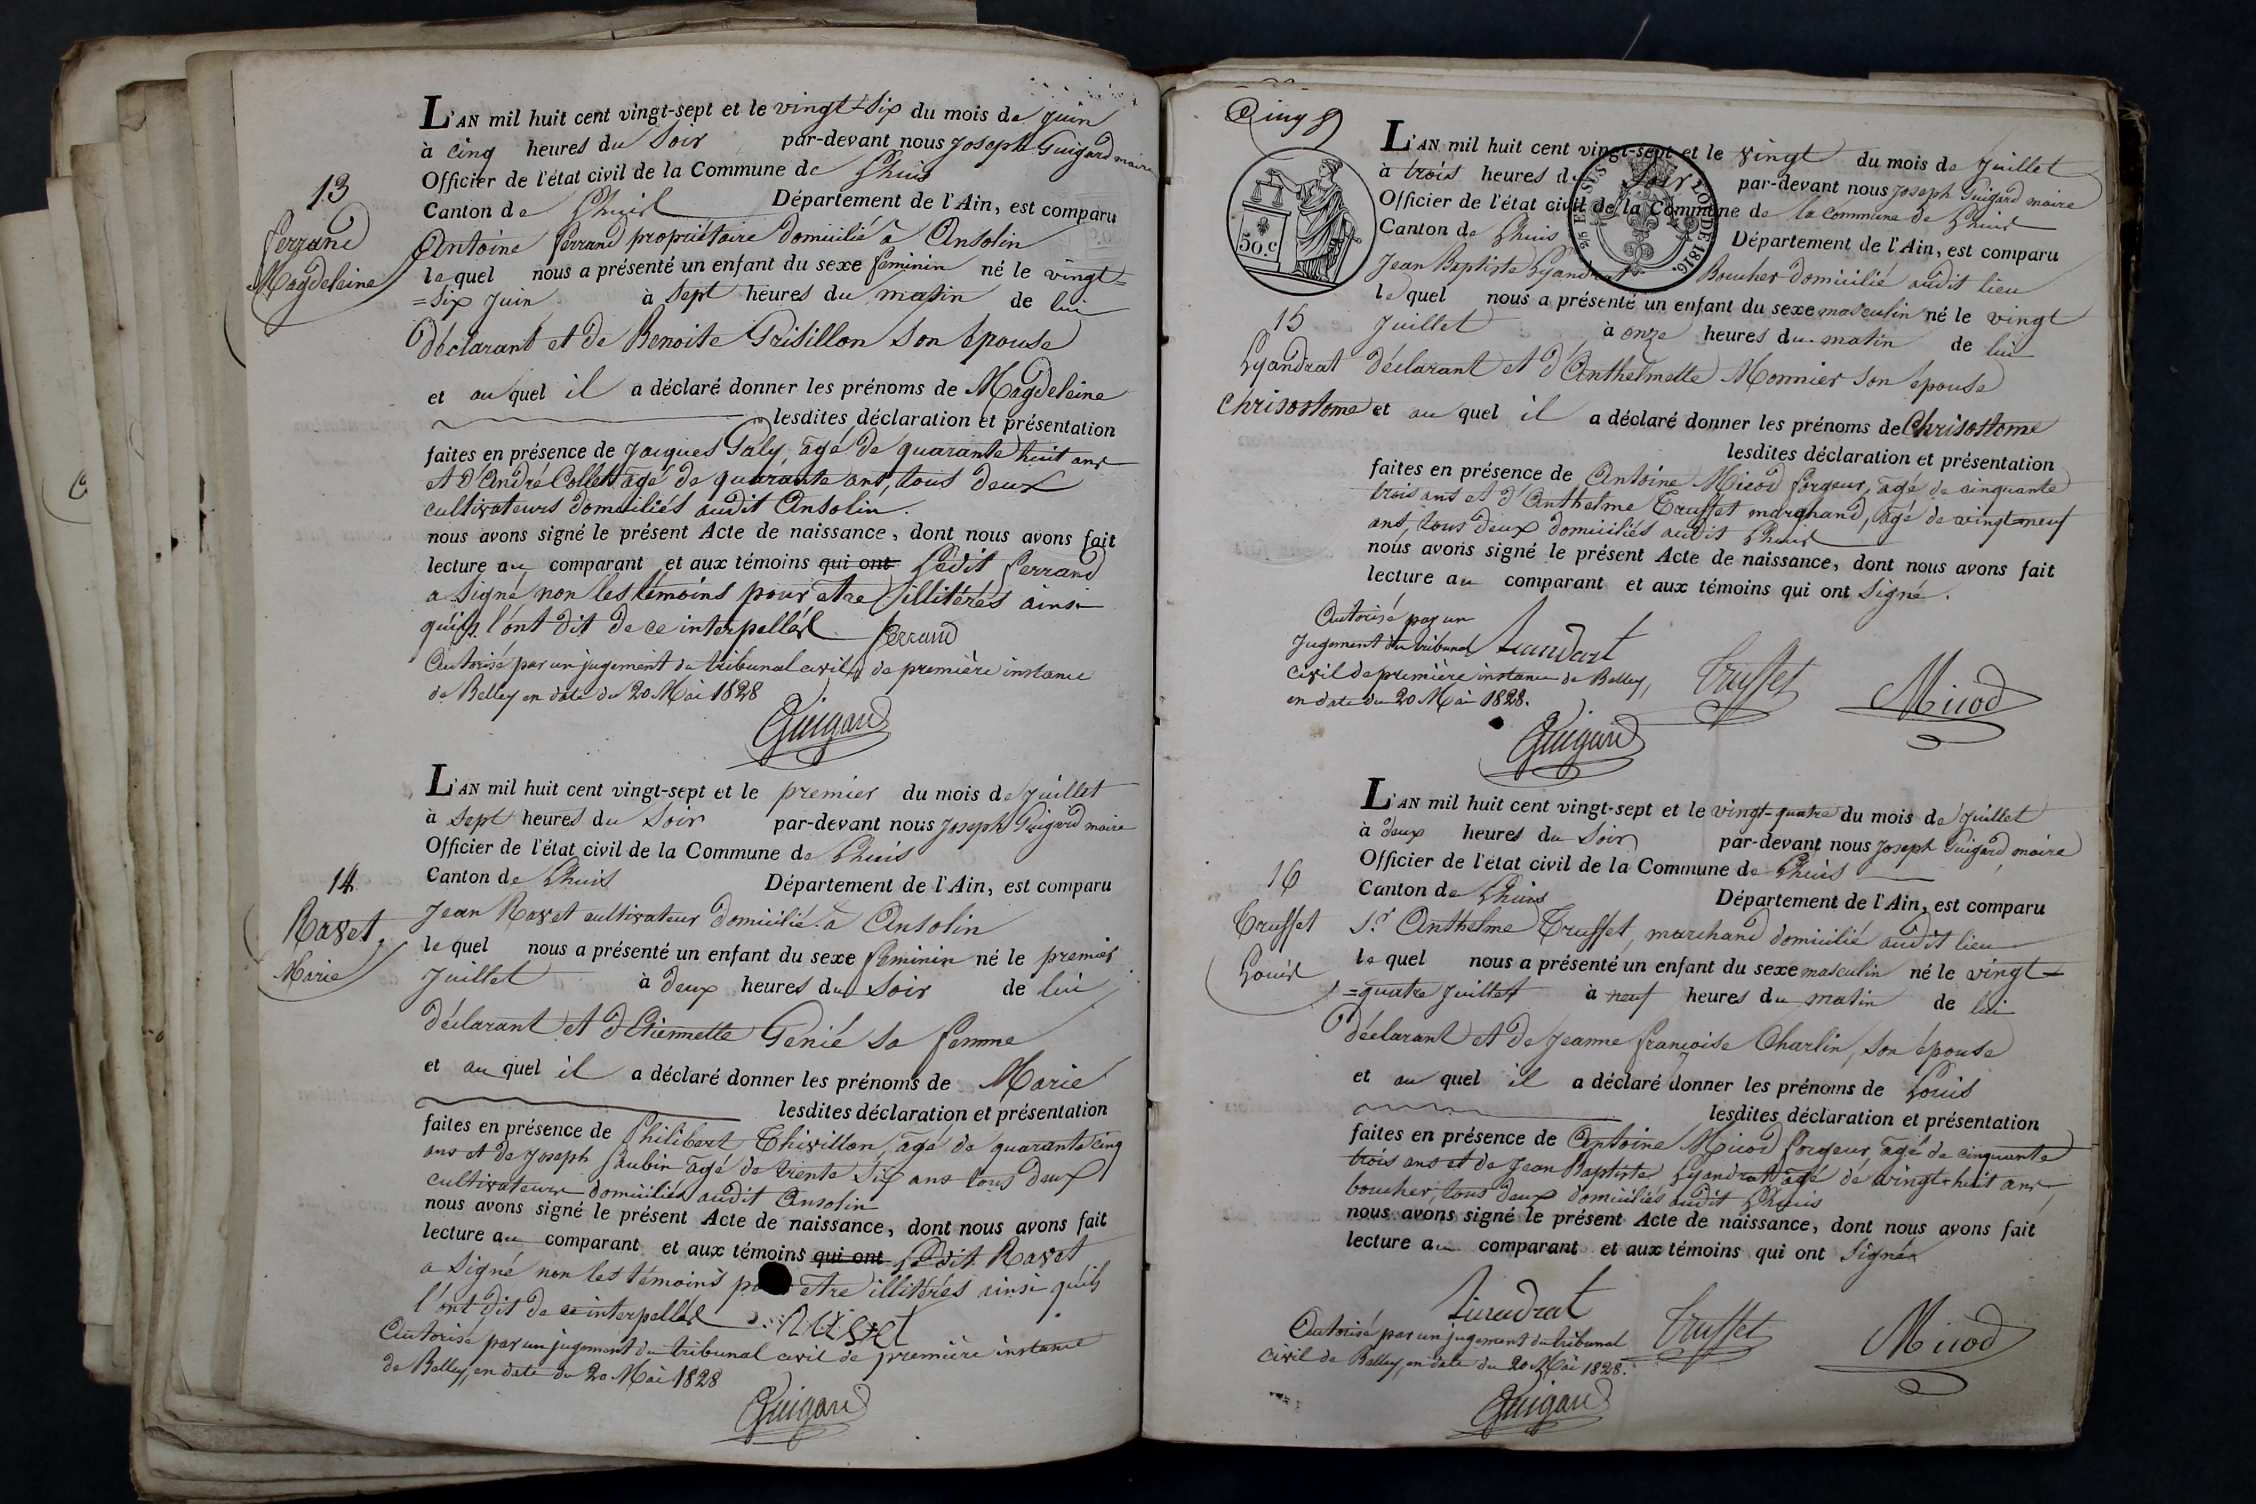 L'AN mil huit cent vingt-sept et le vingt-six du mois de juin
à cinq heures du soir par-devant nous Joseph Guigard maire
Officier de l'état civil de la Commune de Lhuis
Canton de Lhuis Département de l'Ain, est comparu
13
ferrand
Magdeleine
Antoine ferrand propriétaire domicilié à Ansolin
lequel nous a présenté un enfant du sexe feminin né le vingt=
=six Juin à sept heures du matin de lui
déclarant et de Benoite Grisillon son épouse
et auquel il a déclaré donner les prénoms de Magdeleine
lesdites déclaration et présentation
faites en présence de Jacques Galy, agé de quarante huit ans
et d'André Collet agé de quarante ans, tous deux
cultivateurs domiciliés audit Ansolin.
nous avons signé le présent Acte de naissance, dont nous avons fait
lecture au comparant et aux témoins qui ont Ledit ferrand
a signé non les témoins pour etre illitérés ainsi
qu'ils l'ont dit de ce interpellés ferrand
Autorisé par un jugement du tribunal civil de première instance
de Belley en date du 20 Mai 1828
Guigard
L'AN mil huit cent vingt-sept et le premier du mois de Juillet
à sept heures du soir par-devant nous Joseph Guigard maire
Officier de l'état civil de la Commune de Lhuis
Canton de Lhuis Département de l'Ain, est comparu
14
Ravet,
Marie
Jean Ravet cultivateur domicilié à Ansolin
lequel nous a présenté un enfant du sexe feminin né le premier
Juillet à deux heures du soir de lui
déclarant et d'Etiennette Genié sa femme
et auquel il a déclaré donner les prénoms de Marie
lesdites déclaration et présentation
faites en présence de Philibert Thivillon, agé de quarante cinq
ans et de Joseph Jaubin agé de trente six ans tous deux
cultivateurs domiciliés audit Ansolin
nous avons signé le présent Acte de naissance, dont nous avons fait
lecture au comparant et aux témoins qui ont Ledit Ravet
a signé non les témoins pour etre illitérés ainsi qu'ils
l'ont dit de ce interpellés Ravet
Autorisé par un jugement du tribunal civil de première instance
de Belley, en date du 20 Mai 1828
Guigard
Cinq
50.c
25 EN SUS
LOI DE 1816.
L'AN mil huit cent vingt-sept et le vingt du mois de Juillet
à trois heures du soir par-devant nous Joseph Guigard maire
Officier de l'état civil de la Commune de la commune de Lhuis
Canton de Lhuis Département de l'Ain, est comparu
Jean Baptiste Lyandrat Boucher domicilié audit lieu
lequel nous a présenté un enfant du sexe masculin né le vingt
15
Lyandrat
Chrisostome
Juillet à onze heures du matin de lui
déclarant et d'Anthelmette Monnier son épouse
et auquel il a déclaré donner les prénoms de Chrisostome
lesdites déclaration et présentation
faites en présence de Antoine Micod forgeur, agé de cinquante
trois ans et d'Anthelme Truffet marchand, agé de vingt-neuf
ans, tous deux domiciliés audit Lhuis
nous avons signé le présent Acte de naissance, dont nous avons fait
lecture au comparant et aux témoins qui ont signé.
Autorisé par un
Jugement du tribunal
civil de première instance de Belley,
en date du 20 Mai 1828.
Truffet
Micod
Guigard
L'AN mil huit cent vingt-sept et le vingt-quatre du mois de Juillet
à deux heures du soir par-devant nous Joseph Guigard, maire
Officier de l'état civil de la Commune de Lhuis
Canton de Lhuis Département de l'Ain, est comparu
16
Truffet
Louis
Sr. Anthelme Truffet, marchand domicilié audit lieu
lequel nous a présenté un enfant du sexe masculin né le vingt
=quatre Juillet à neuf heures du matin de lui
déclarant et de Jeanne françoise Charlin, son épouse
et auquel il a déclaré donner les prénoms de Louis
lesdites déclaration et présentation
faites en présence de Antoine Micod forgeur, agé de cinquante
trois ans et de Jean Baptiste Lyandrat agé de vingt-huit ans
boucher, tous deux domiciliés audit Lhuis
nous avons signé le présent Acte de naissance, dont nous avons fait
lecture au comparant et aux témoins qui ont signé
Autorisé par un jugement du tribunal
civil de Belley, en date du 20 Mai 1828.
Truffet
Micod
Guigard